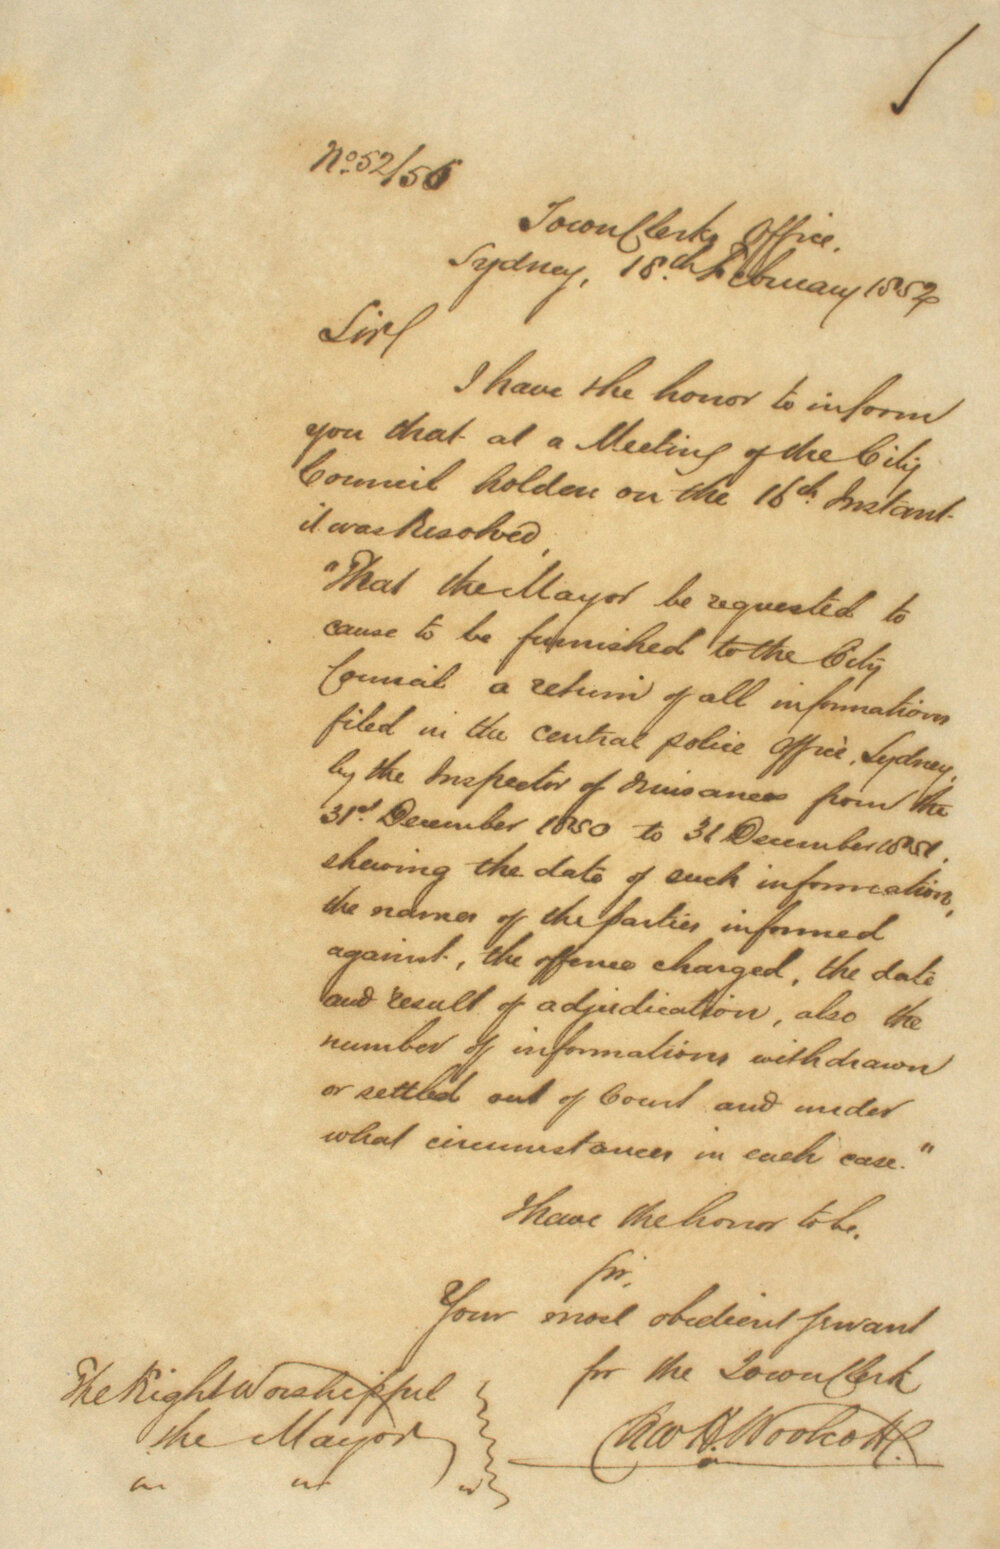 No. 52/56
Town Clerks Office.
Sydney, 18th. February 1852
Sir/
I have the honor to inform
you that at a Meeting of the City
Council holden on the 16th. Instant
it was Resolved,
"That the Mayor be requested to
cause to be furnished to the City
Council a return of all informations
filed in the central police Office, Sydney,
by the Inspector of Nuisances from the
31st December 1850 to 31 December 1851,
shewing the date of such information,
the names of the parties informed
against, the offence charged, the date
and result of adjudication, also the
number of informations withdrawn
or settled out of Court and under
what circumstances in each case."
I have the honor to be,
Sir,
Your most obedient servant
for the Town Clerk
Woolcott.
The Right Worshipful
the Mayor